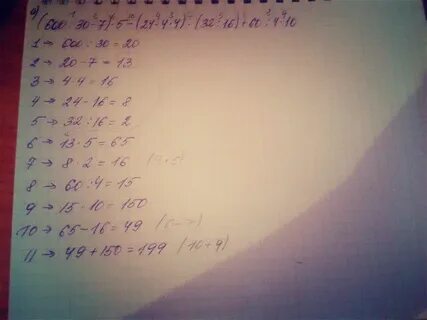 a) (600:30-7)·5-(24-4·4)·(32:16)+60:4·10
1 → 600:30=20
2 → 20-7=13
3 → 4·4=16
4 → 24-16=8
5 → 32:16=2
6 → 13·5=65
7 → 8·2=16 (4·5)
8 → 60:4=15
9 → 15·10=150
10 → 65-16=49 (6-7)
11 → 49+150=199 (10+9)